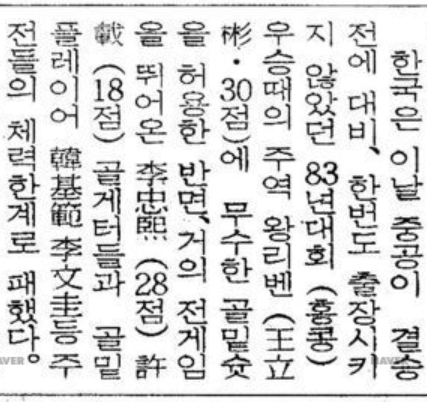 한국은 이날 중공이 결승
전에 대비, 한번도 출장시키
지 않았던 83년대회 (홍콩)
우승때의 주역 왕리벤 (王立
彬·30점)에 무수한 골밑슛
을 허용한 반면, 거의 전게임
을 뛰어온 李忠熙 (28점) 許
載 (18점) 골게터들과 골밑
플레이어 韓基範 李文圭등 주
전들의 체력한계로 패했다。